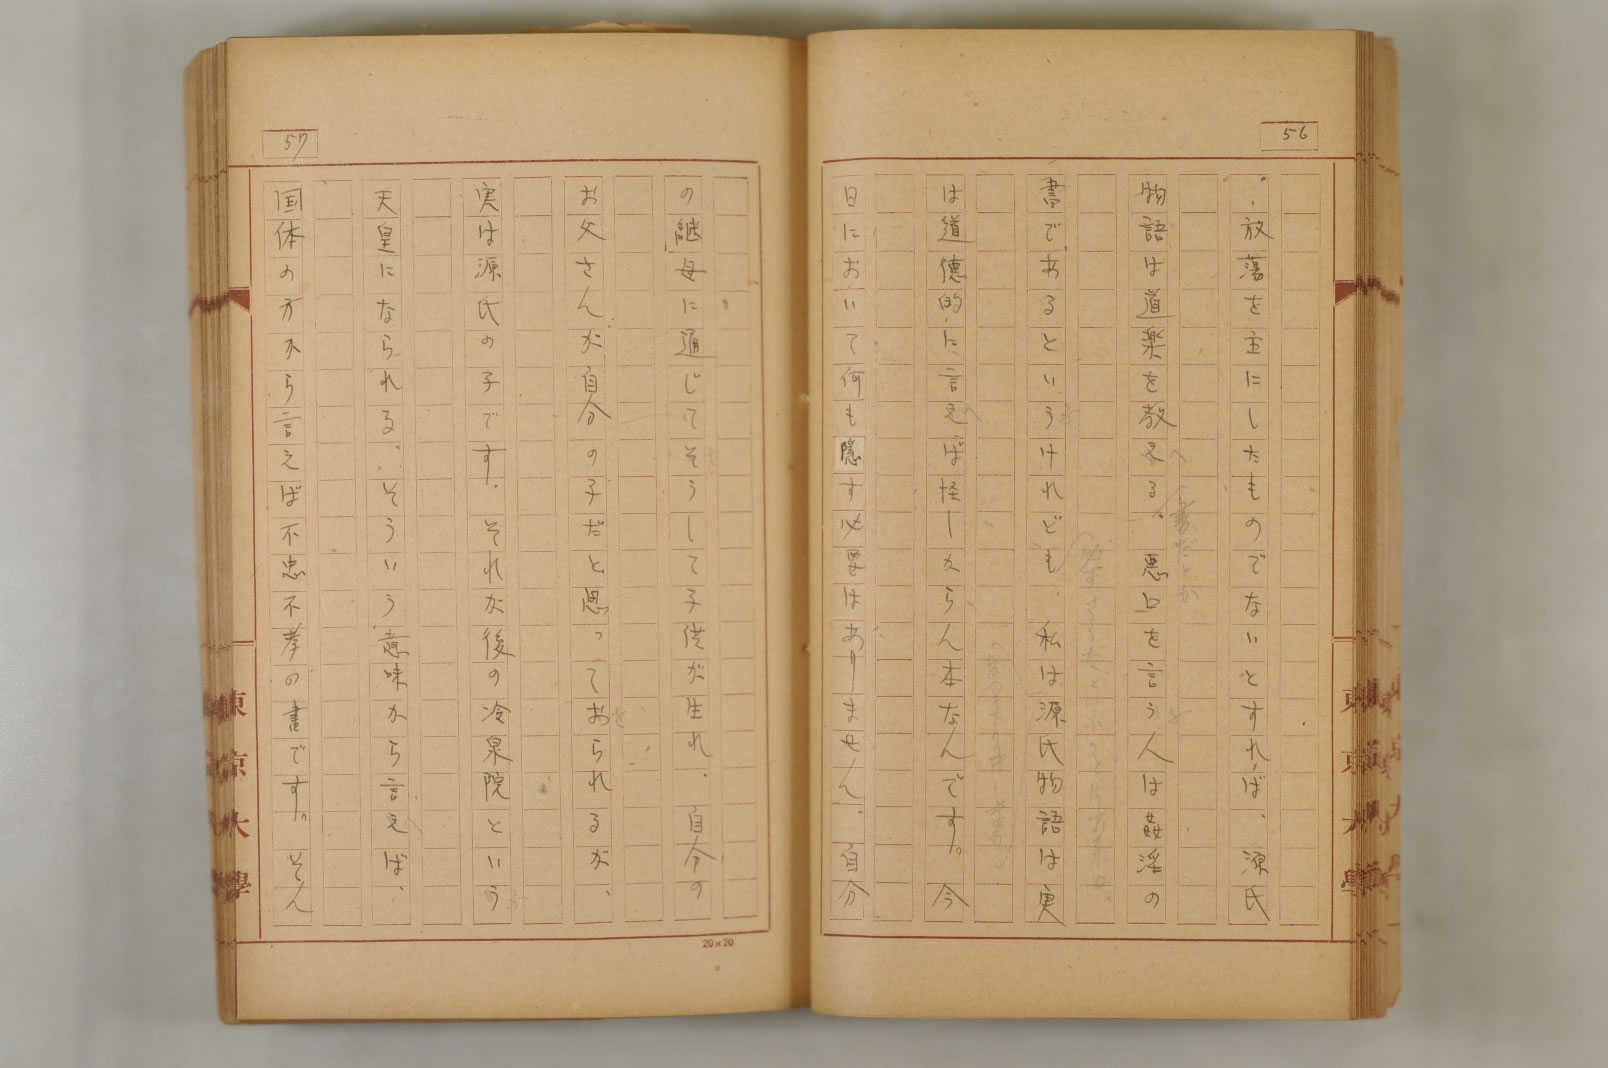 56
、放蕩を主にしたものでないとすれば、源氏
物語は道楽を教える。悪口を言う人は姦淫の
書であるというけれども、私は源氏物語は実
は道徳的に言えば怪しからん本なんです。今
日において何も隠す必要はありません。自分
東京大學
57
の継母に通じてそうして子供が生れ、自分の
お父さんが自分の子だと思っておられるが、
実は源氏の子です。それが後の冷泉院という
天皇になられる。そういう意味から言えば、
国体の方から言えば不忠不孝の書です。そん
東京大學
20×20